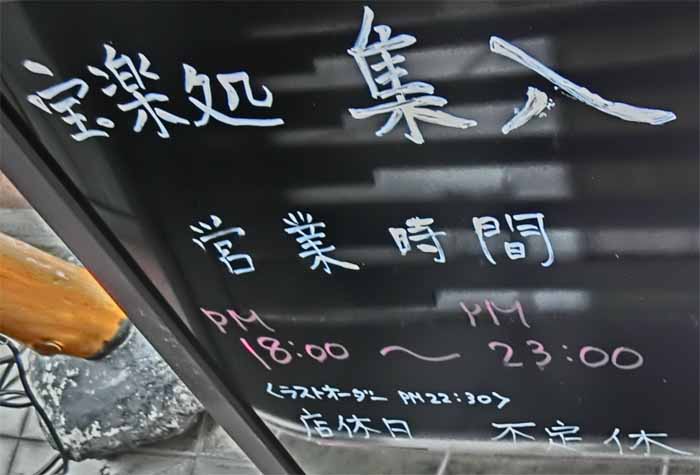 宝楽処 集入
営業時間
PM PM
18:00 〜 23:00
<ラストオーダー PM22:30>
店休日 不定休